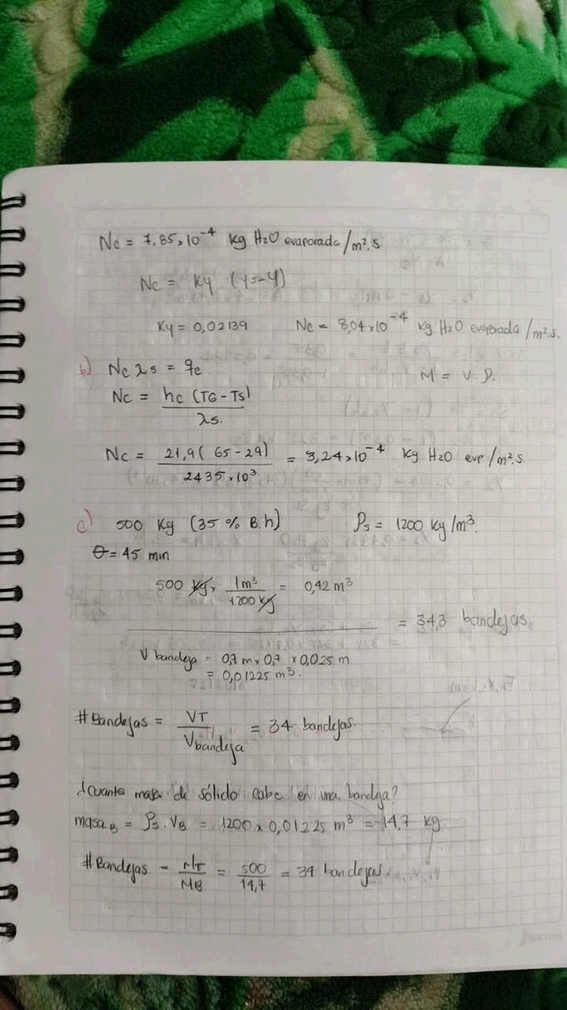 Nc = 7,85×10⁻⁴ Kg H2O evaporada/m².s
Nc = Ky (Ys-Y)
Ky = 0,02139 Nc = 8,04×10⁻⁴ Kg H2O evaporada/m².s.
b) Nc λs = qc M = V.ρ.
Nc = hc (TG - Ts) / λs.
Nc = 21,9 (65 - 29) / 2435×10³ = 3,24×10⁻⁴ Kg H2O evp/m².s
c) 500 Kg (35 % B.h) ρs = 1200 kg/m³.
θ = 45 min
500 Kg × 1m³ / 1200 kg = 0,42 m³
= 34,3 bandejas.
V bandeja = 0,7 m × 0,7 × 0,025 m
= 0,01225 m³.
#Bandejas = VT / Vbandeja = 34 bandejas.
¿Cuanta masa de sólido cabe en una bandeja?
masaB = ρs . VB = 1200 × 0,01225 m³ = 14,7 kg
#Bandejas - MT / MB = 500 / 14,7 = 34 bandejas.